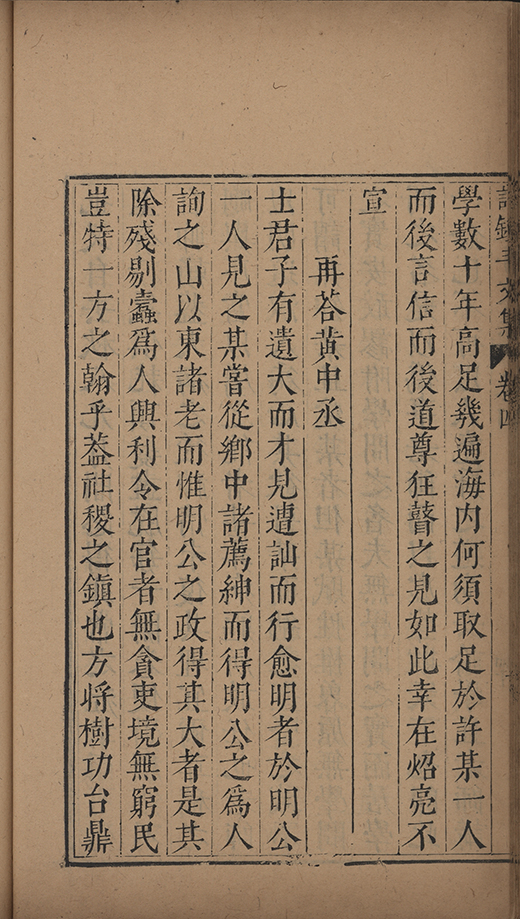 許鍾斗文集 卷四
學數十年高足幾遍海内何須取足於許某一人
而後言信而後道尊狂瞽之見如此幸在炤亮不
宣
再荅黄中丞
士君子有遺大而才見遭訕而行愈明者於明公
一人見之某嘗從鄉中諸薦紳而得明公之爲人
詢之山以東諸老而惟明公之政得其大者是其
除殘剔蠹爲人興利令在官者無貪吏境無窮民
豈特一方之翰乎葢社稷之鎮也方將樹功台鼎